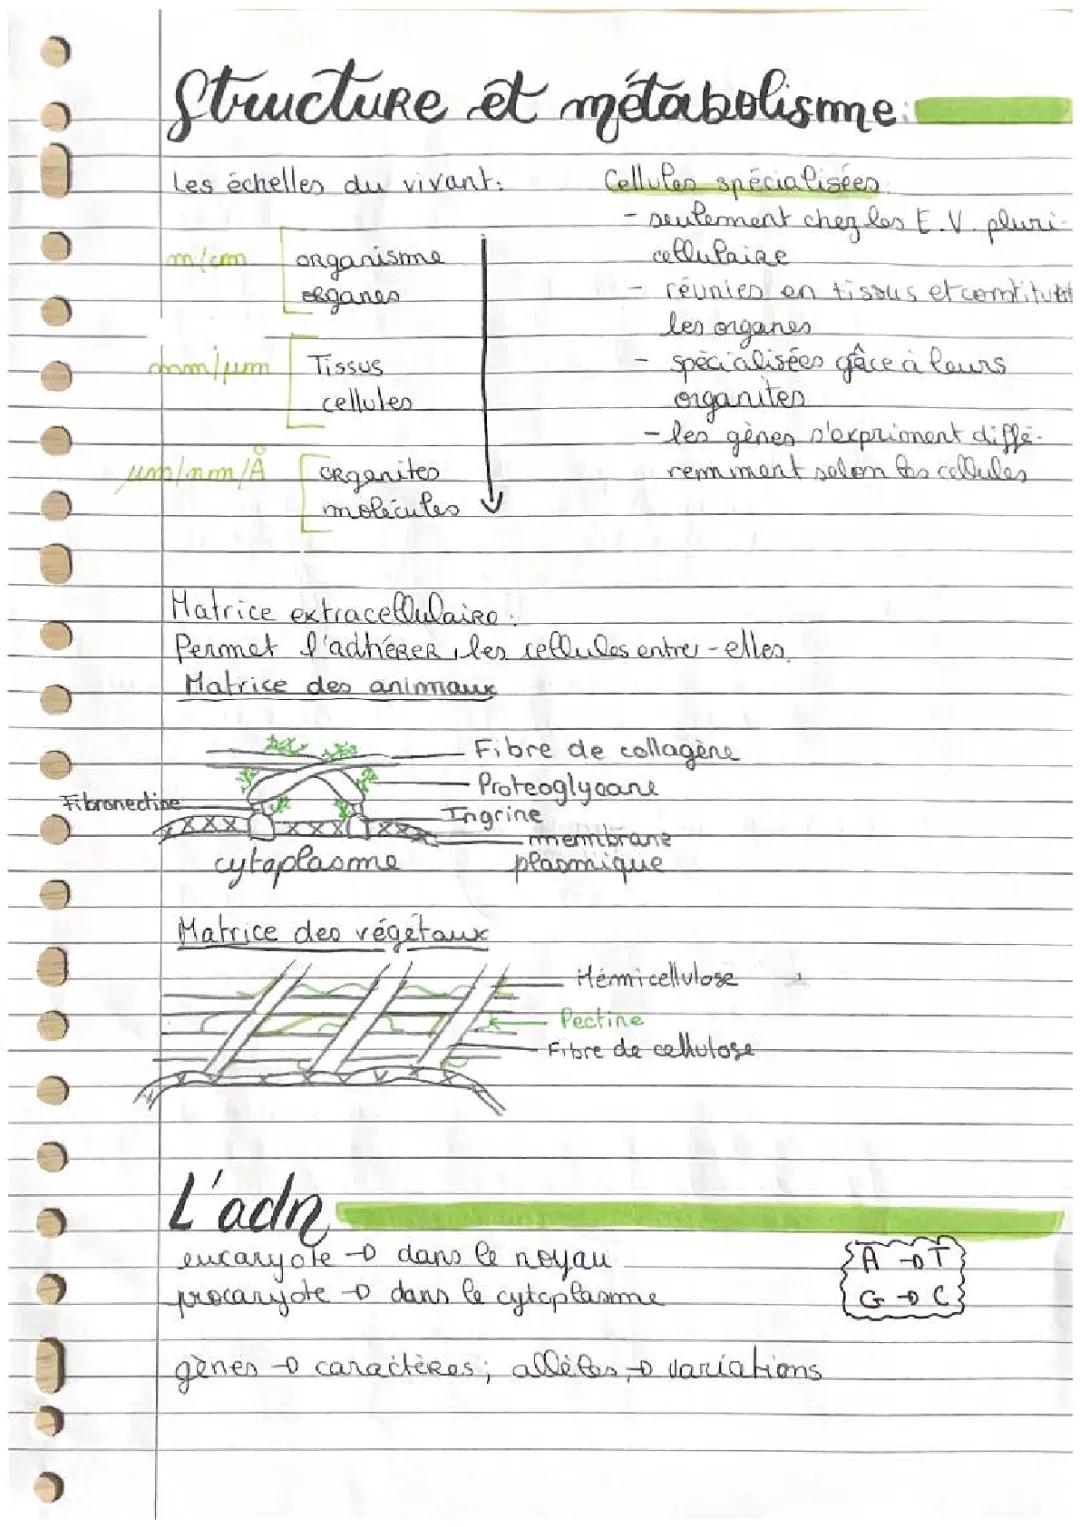 Structure et métabolisme:
Les échelles du vivant:
m/cm
organisme
organes
mm/µm
Tissus
cellules
µm/nm/Å
organites
molécules
Cellules spécialisées:
- seulement chez les E.V. pluri-
cellulaire
- réunies en tissus et constituent
les organes
- spécialisées grâce à leurs
organites
- les gènes s'expriment diffé-
remment selon les cellules
Matrice extracellulaire:
Permet l'adhérer les cellules entre-elles.
Matrice des animaux
Fibre de collagène
Proteoglycane
Fibronectine
Ingrine
membrane
plasmique
cytoplasme
Matrice des végétaux
Hémicellulose
Pectine
Fibre de cellulose
L'adn
eucaryote → dans le noyau
procaryote → dans le cytoplasme
A → T
G → C
gènes → caractères; allèles → variations